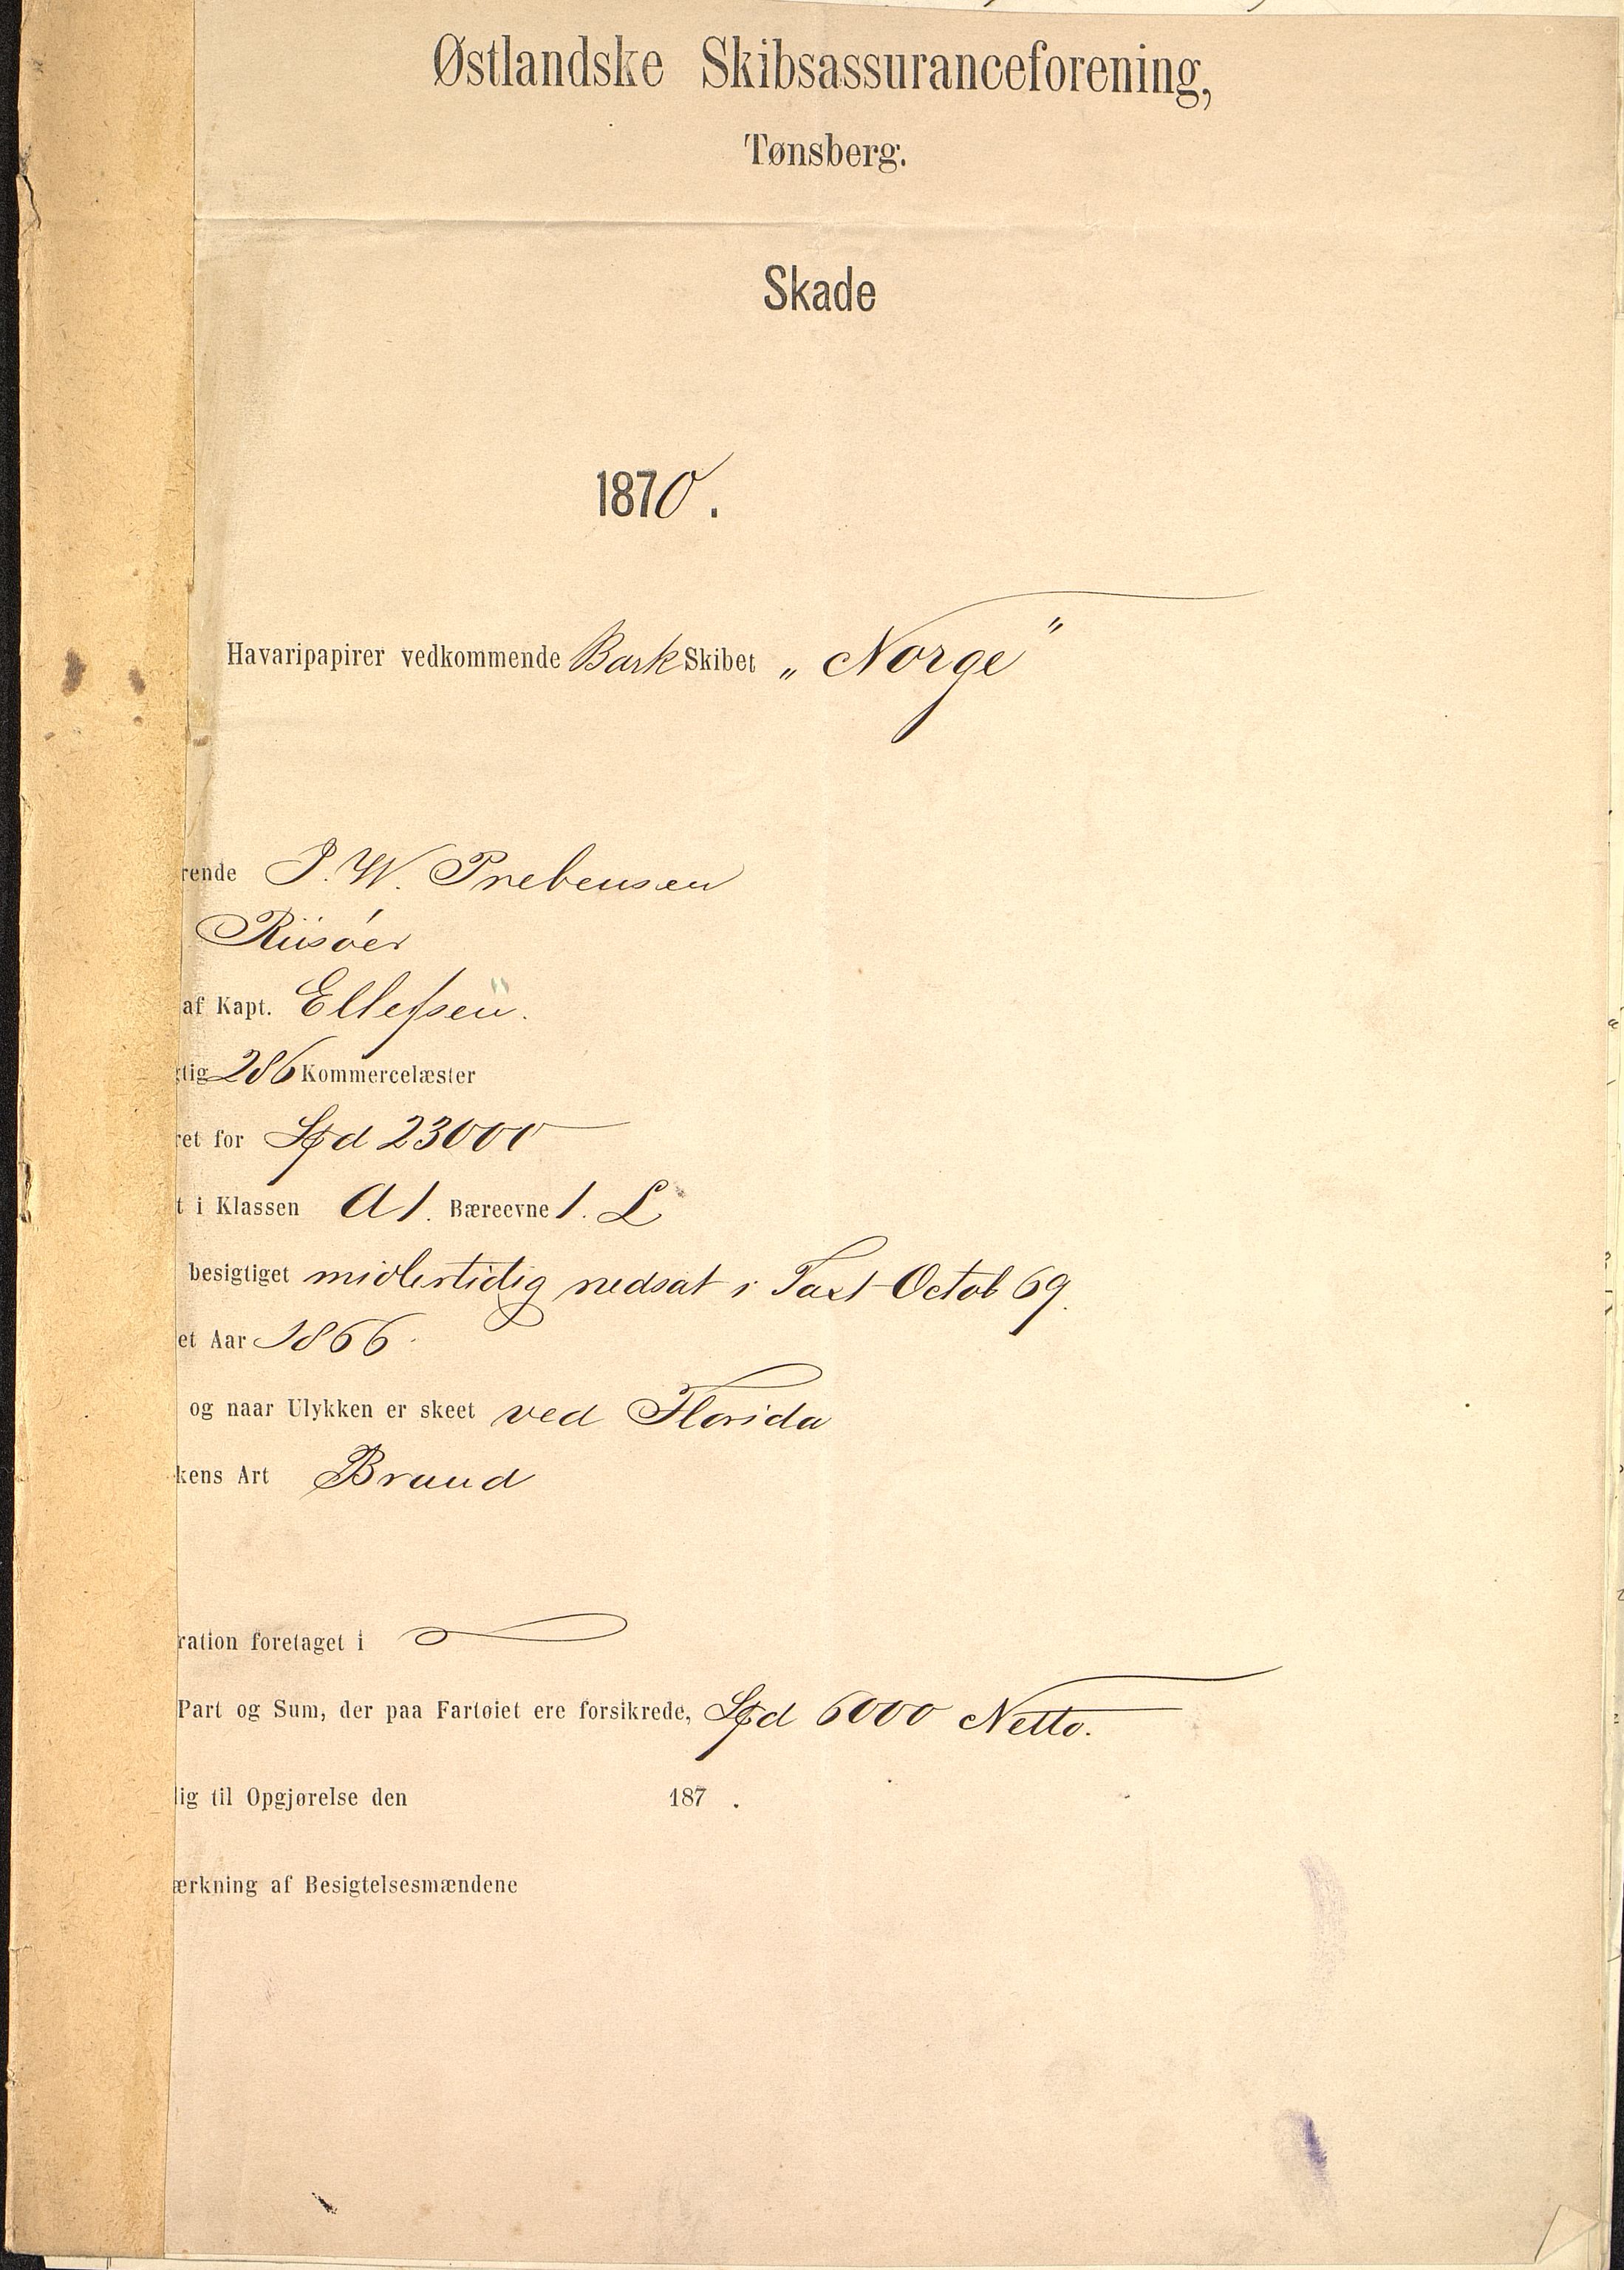 Østlandske Skibsassuranceforening,
Tønsberg.
Skade
1870.
Havaripapirer vedkommende Bark Skibet „Norge"
rende J. W. Prebensen
Riisøer
af Kapt. Ellefsen.
gtig 286 Kommercelæster
ret for Spd 23000
t i Klassen A1. Bæreevne 1. L
besigtiget midlertidig nedsat i Taxt Octob 69.
et Aar 1866.
og naar Ulykken er skeet ved Florida
kens Art Brand
ration foretaget i
Part og Sum, der paa Fartøiet ere forsikrede, Spd 6000 Netto.
lig til Opgjørelse den 187 .
ærkning af Besigtelsesmændene